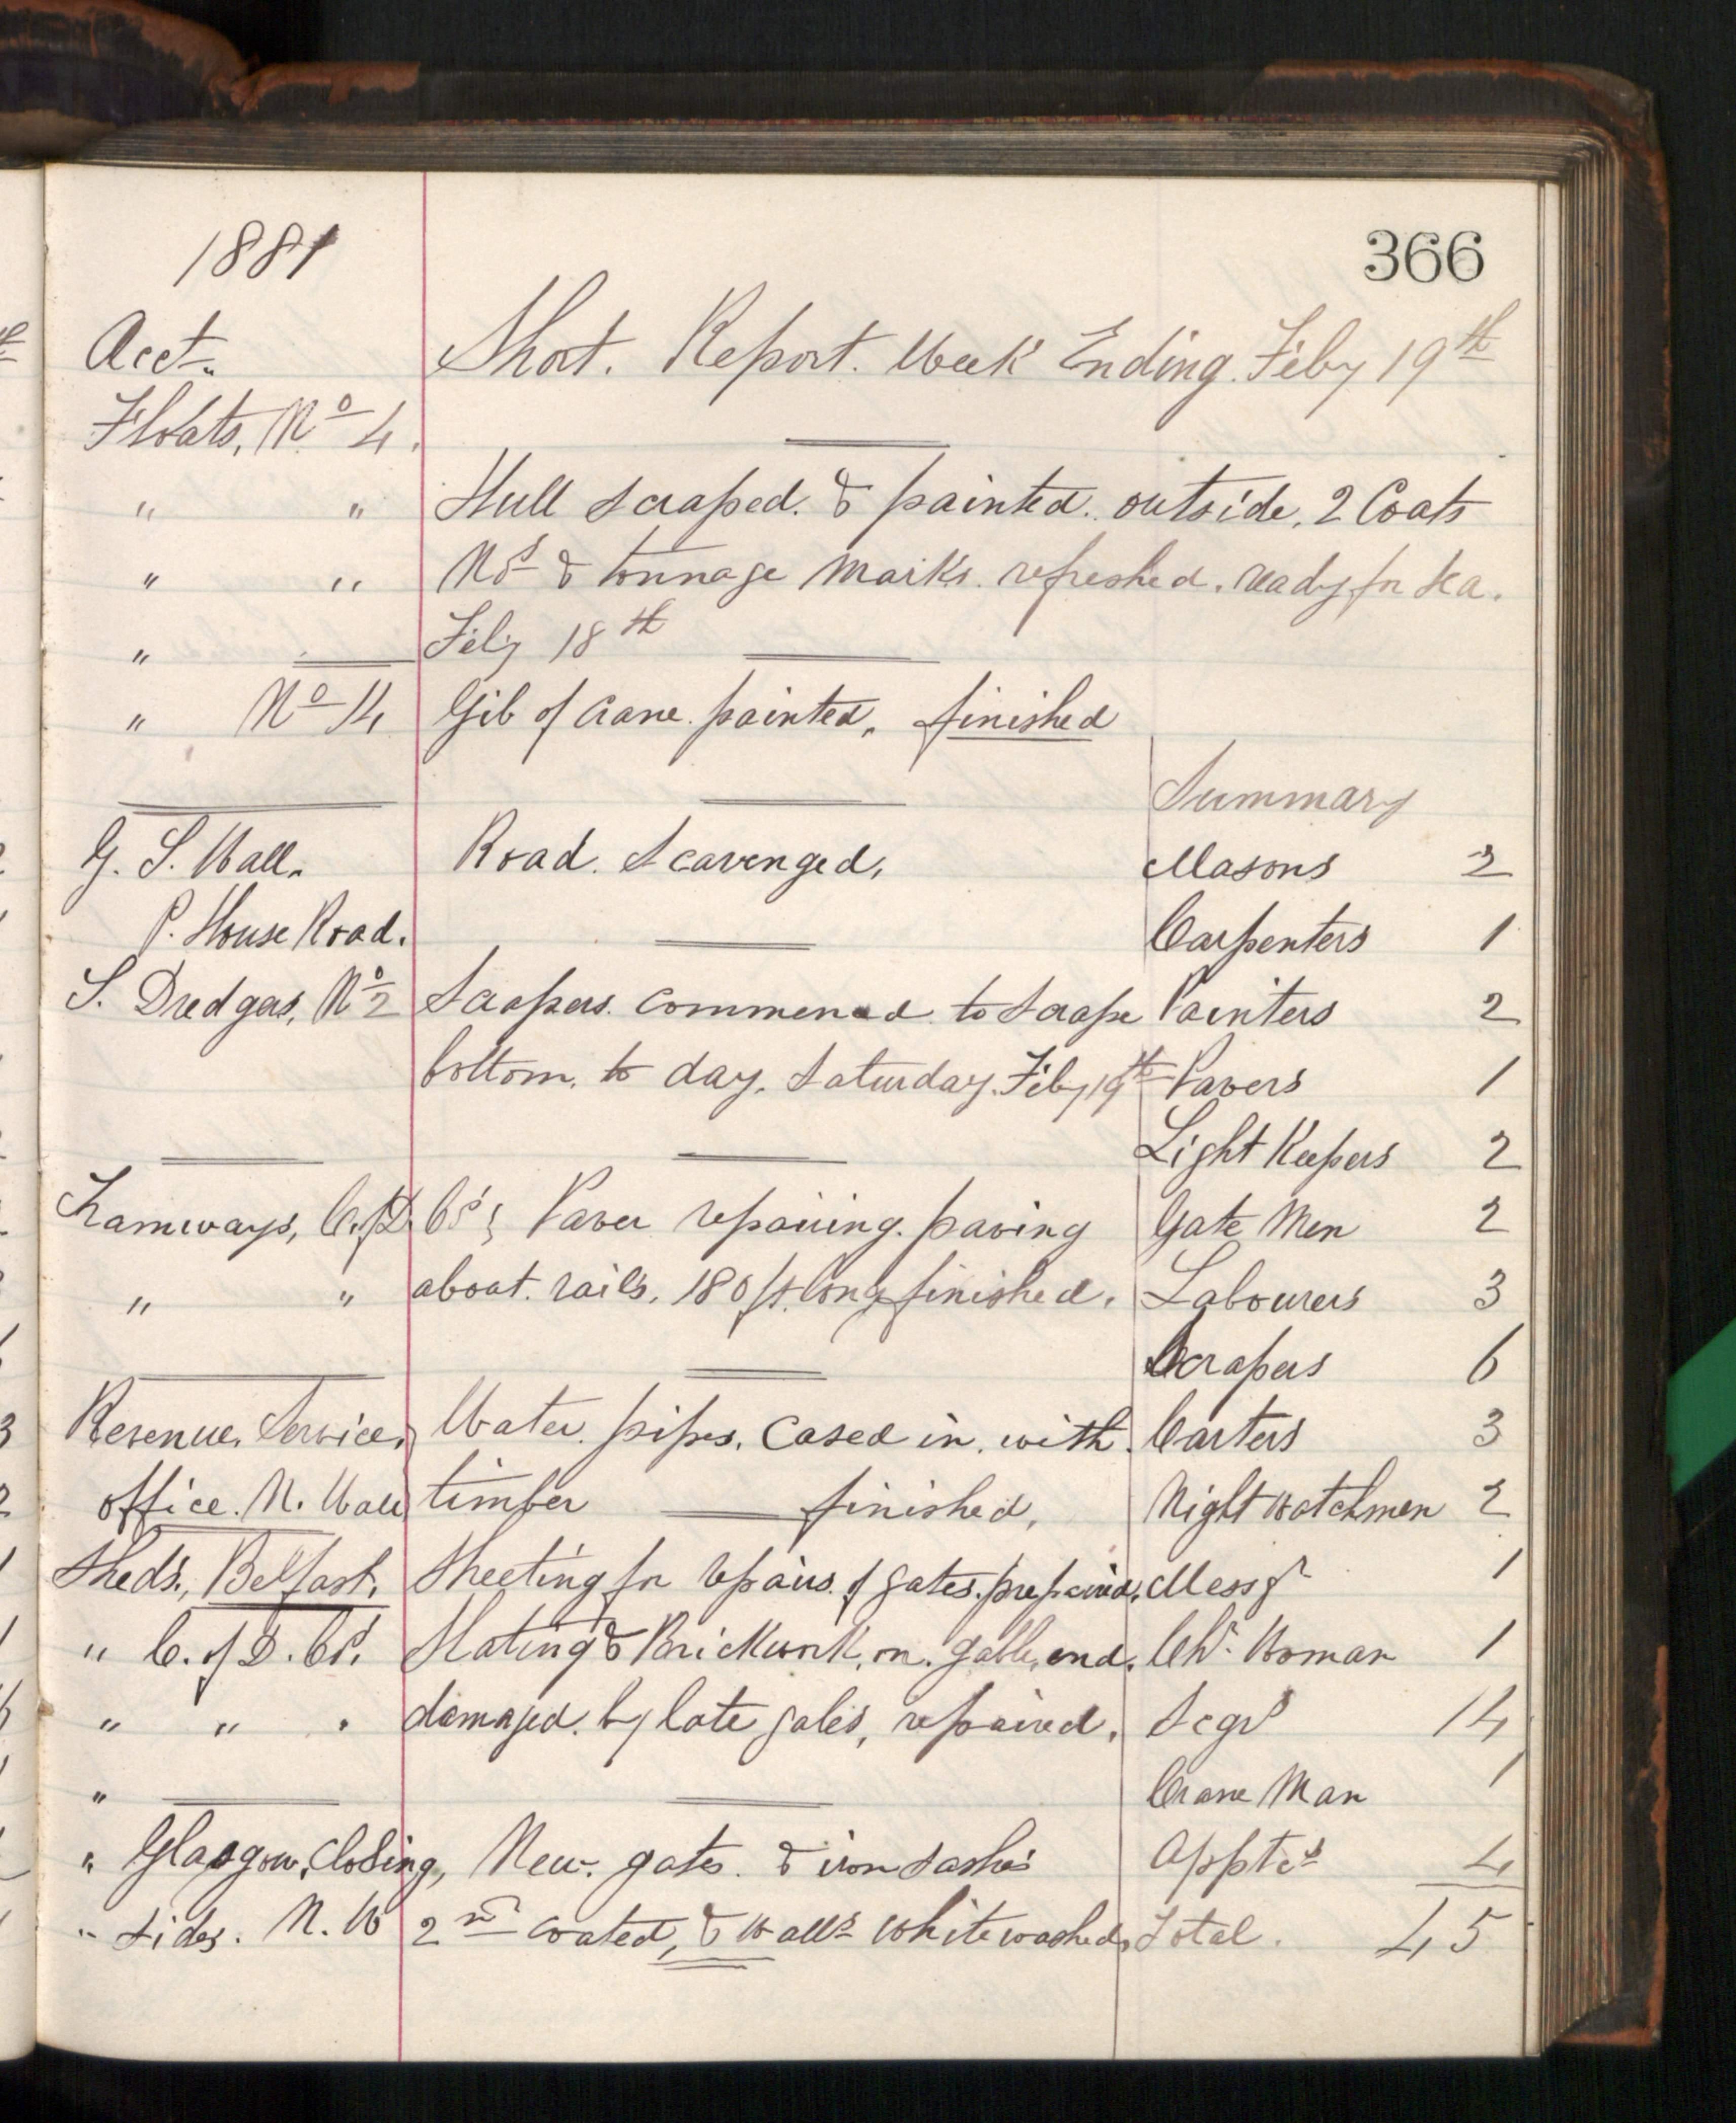 1881
366
Acct. Short. Report. Week Ending. Feby 19th
Floats, No 4.
" " Hull scraped. & painted. outside, 2 Coats
" " Nos & tonnage marks. refreshed. ready for sea.
" Feby 18th
" No 14 Gib of crane. painted, finished
Summary
G. S. Wall. Road. Scavenged, Masons 2
P. House Road. Carpenters 1
S. Dredgers, No 2 Scrapers. commenced to scrape Painters 2
bottom, to day, Saturday. Feby 19th Pavers 1
Light Keepers 2
Tramways, C. of D Co's, Paver repairing. paving Gate Men 2
" " about. rails, 180 ft long finished, Labourers 3
Scrapers 6
Revenue, Service, Water. pipes, Cased in, with Carters 3
office. N. Wall timber finished, Night watchmen 2
Sheds, Belfast, Sheeting for repairs. of gates. prepared, Messr 1
" C. of D. Co, Slating & Brickwork, on. gable, end, Chr. Woman 1
" " " damaged. by late gales, repaired, Scgrs 14
" Crane Man 1
" Glasgow, Closing, New. gates. & iron sashes Apptes 4
" sides. N. W 2nd coated, & walls whitewashed, Total. 45